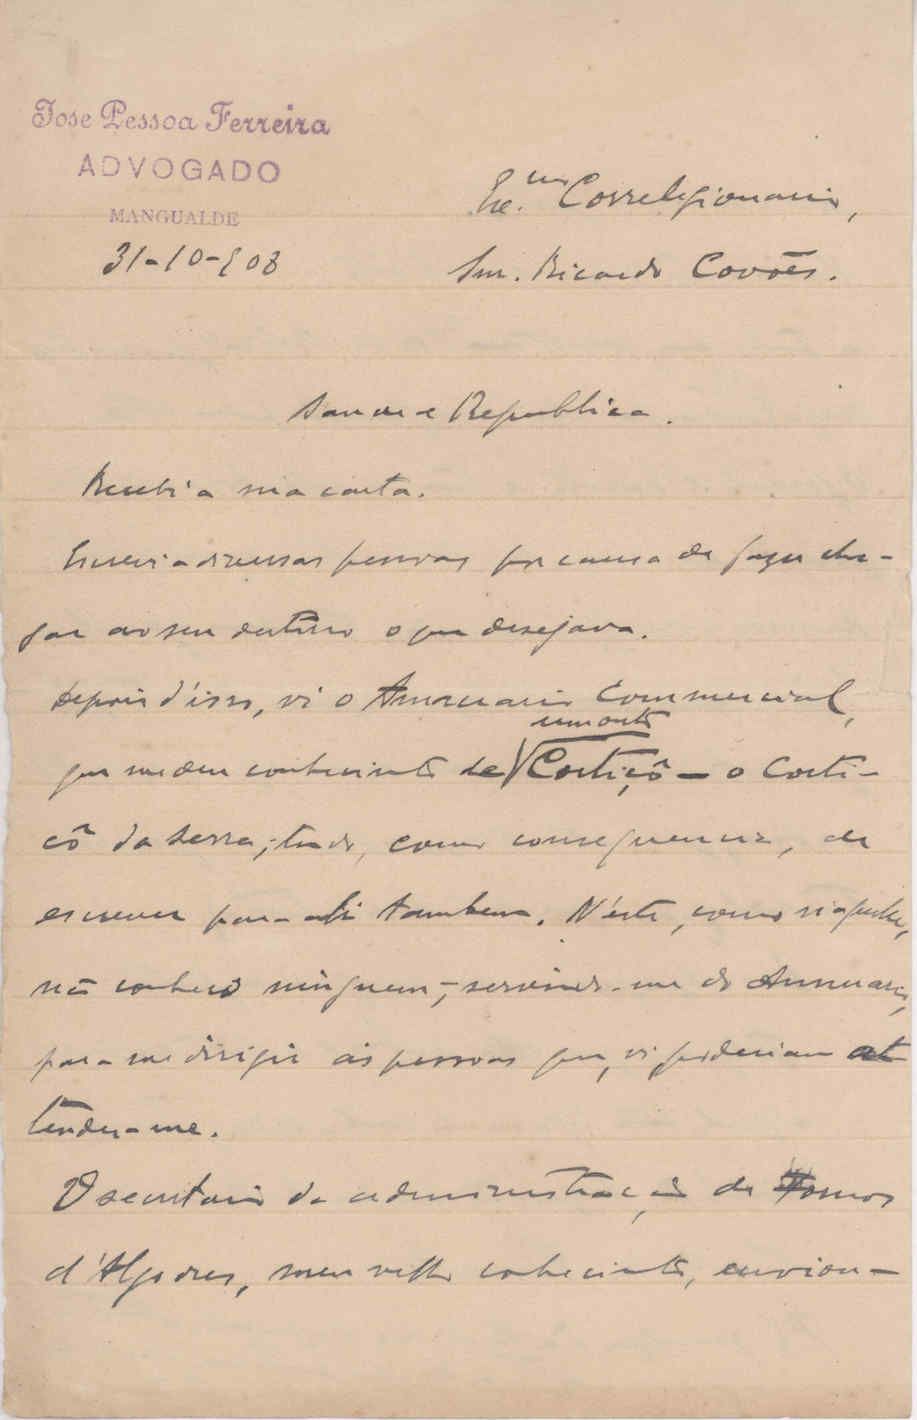 Jose Pessoa Ferreira
ADVOGADO
MANGUALDE
31-10-908
Ex.mo Correlegionario,
Snr. Ricardo Covões.
Saude e Republica.
Recebi a sua carta.
Escrevi a diversas pessoas por causa de fazer che-
gar ao seu destino o que desejava.
Depois d'isso, vi o Annuario Commercial,
que me deu conhecimento de
Cortiçô — o Corti-
cô da Serra; tendo, como consequencia, de
escrever para ali tambem. N'este, como n'aquele,
não conheço ninguem; servindo-me do Annuario,
para me dirigir ás pessoas que, vi poderiam at
tender-me.
O secretario da administração de Fornos
d'Algodres, meu velho conhecido, enviou-